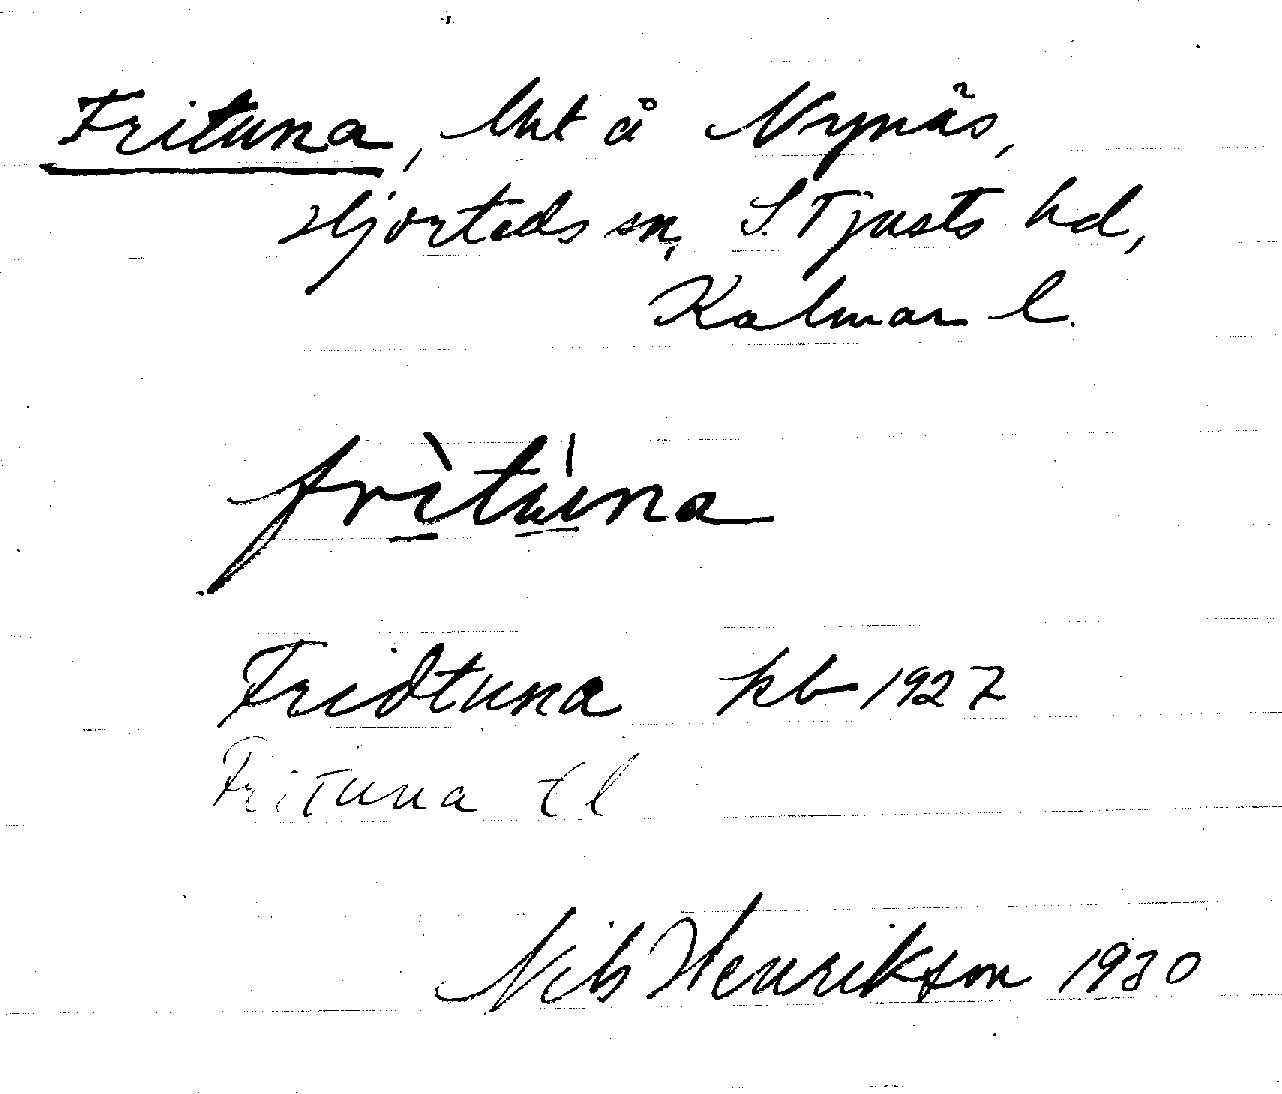 Frituna, lht å Nynäs,
Hjorteds sn, S. Tjusts hd,
Kalmar l.
frìtúna
Fridtuna kb 1927
Frituna tl
Nils Henrikson 1930